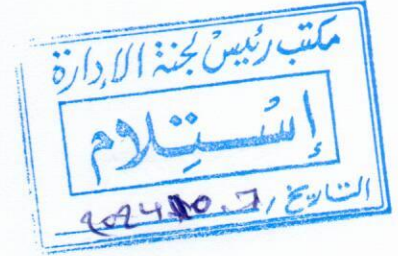 مكتب رئيس لجنة الإدارة
إِسْتِلام
التاريخ